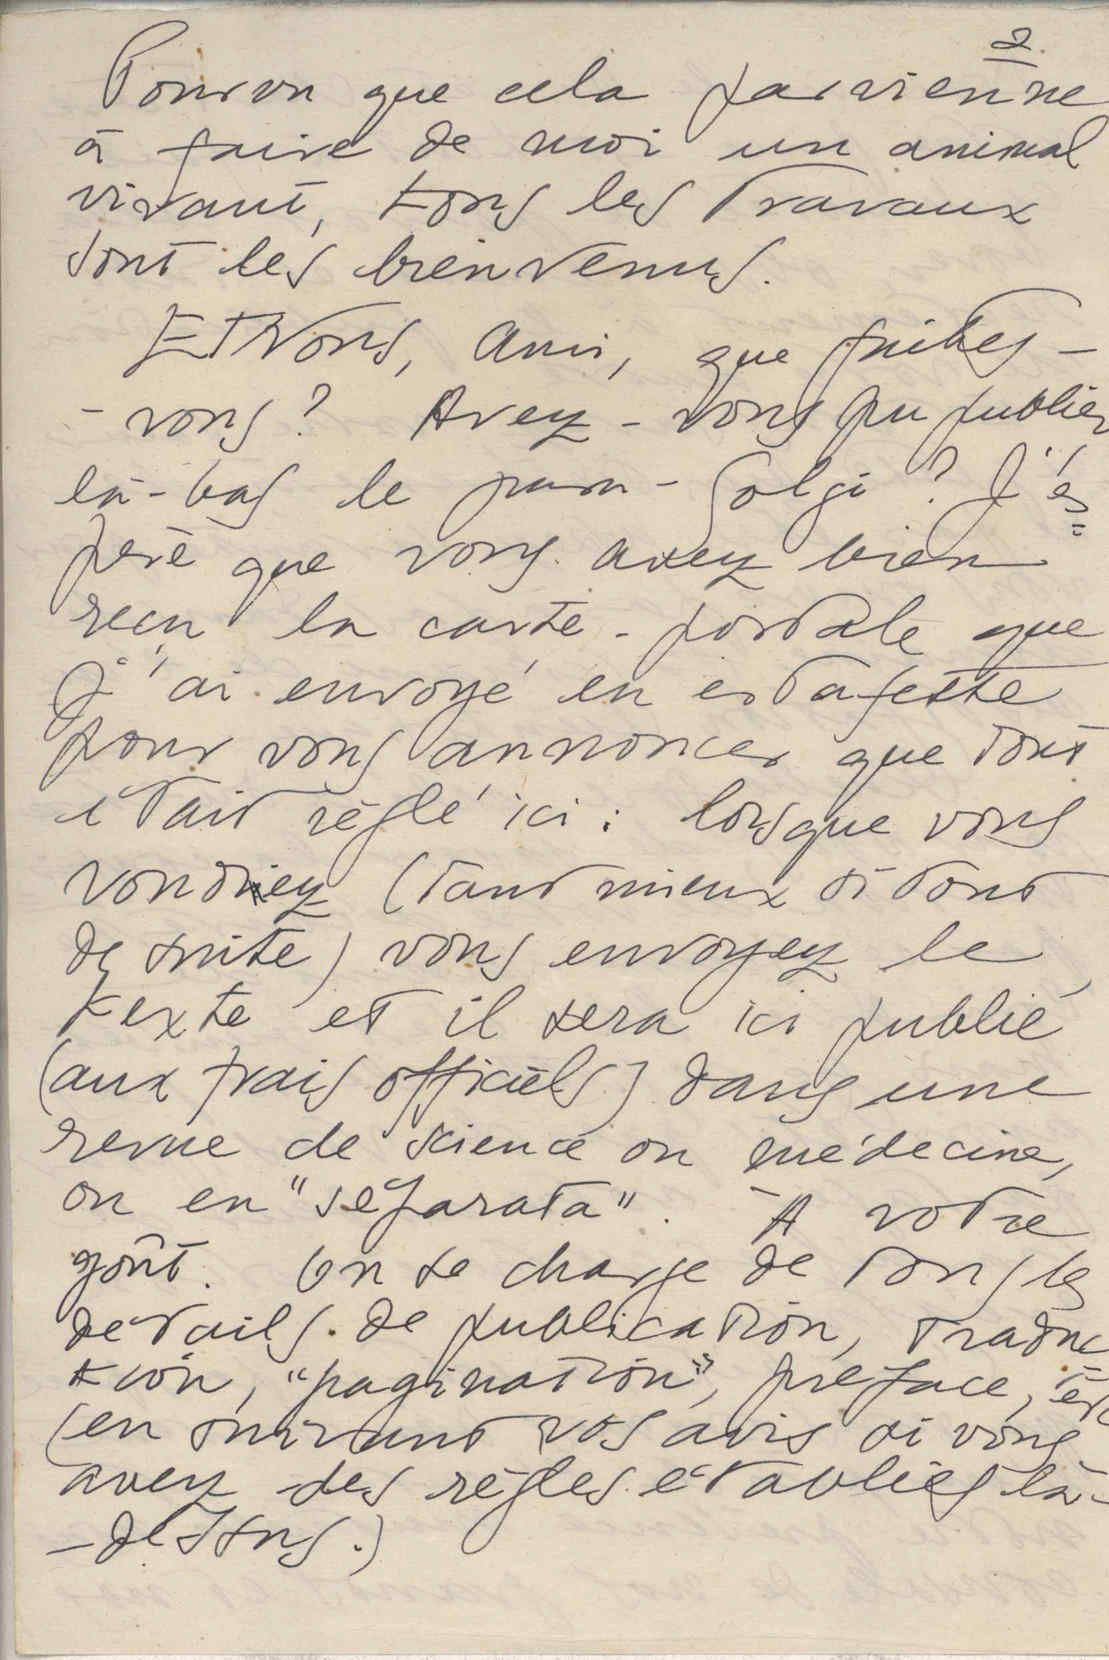 2
Pourvu que cela parvienne
à faire de moi un animal
vivant, tous les travaux
sont les bienvenus.
Et Vous, Ami, que faites-
-vous? Avez-vous pu publier
là-bas le para-Golgi? J'es=
père que vous avez bien
reçu la carte-postale que
j'ai envoyé en estafette
pour vous annoncer que tout
était réglé ici: lorsque vous
voudriez (tant mieux si tout
de suite) vous envoyez le
texte et il sera ici publié
(aux frais officiels) dans une
revue de science ou médecine,
ou en "separata". À votre
goût. On se charge de tous les
détails de publication, traduc
tion, "pagination", préface, etc
(en suivant vos avis si vous
avez des règles établies là-
-dessus.)